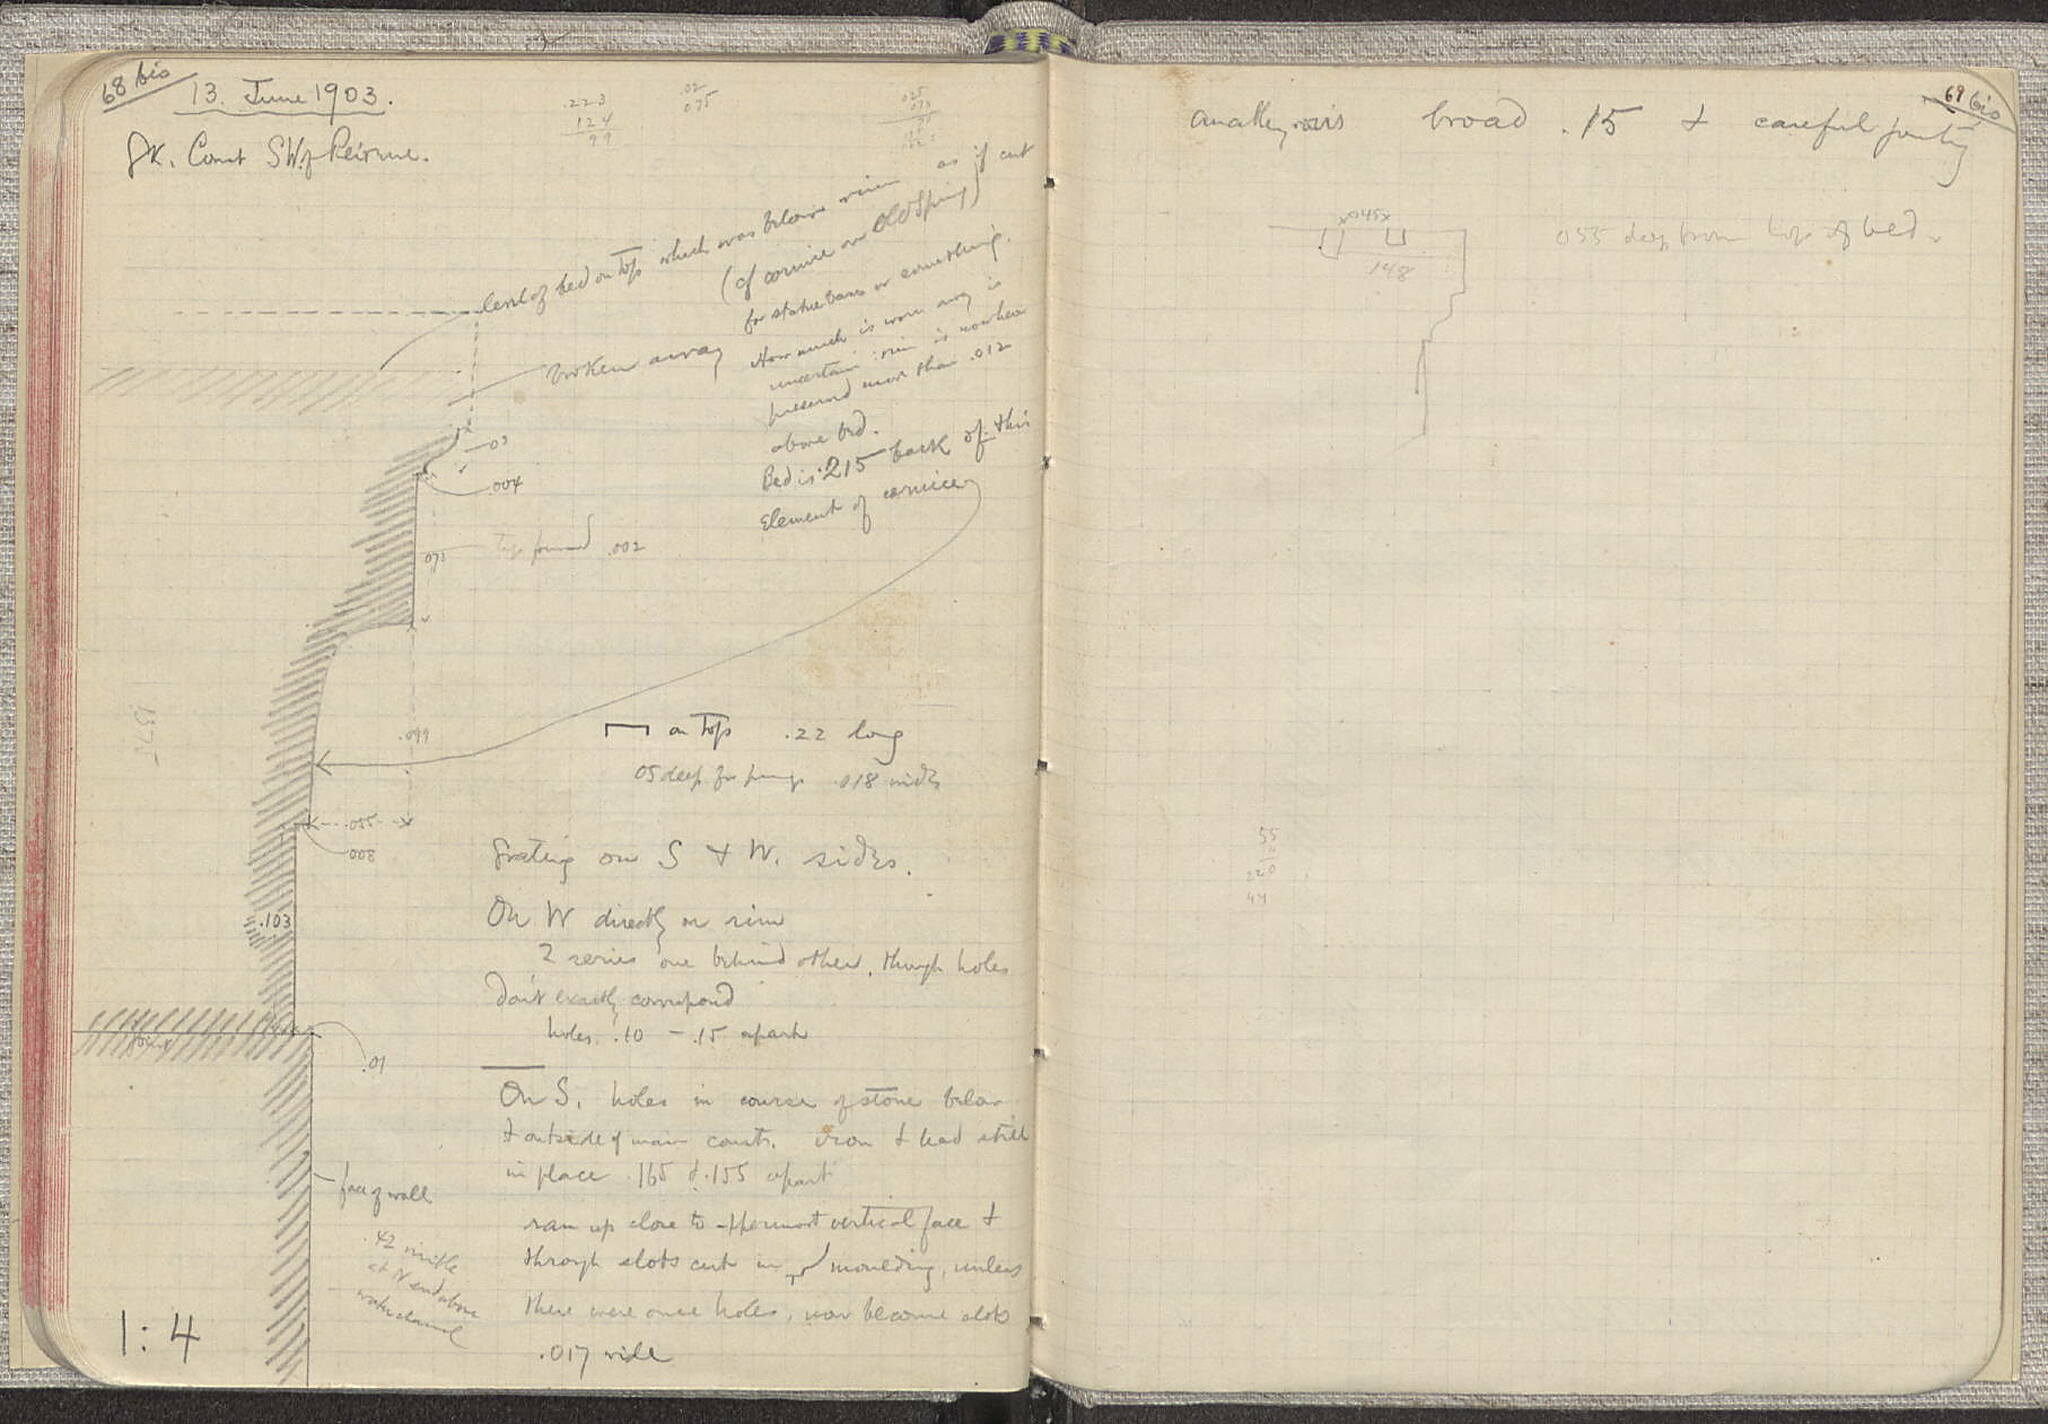 68 bis
13. June 1903.
Gk. Court SW. of Peirene.
.223
124
99
.02
075
level of bed on top which was below rim as if cut
(cf cornice on Old Spring)
for statue bases or something.
How much is worn away is
uncertain : rim is nowhere
preserved more than .012
above bed.
Bed is .215 back of this
Element of cornice
broken away
03
.004
071
top forward .002
.099
.055
.008
.103
.01
face of wall
.42 visible
at N end above
water channel
1:4
on top .22 long
05 deep for
.018 wide
Grating on S & W. sides.
On W directly on rim
2 series one behind other, though holes
don't exactly correspond
holes .10 – .15 apart
On S. holes in course of stone below
& outside of main constr. iron & lead still
in place .165 & .155 apart
ran up close to uppermost vertical face &
through slots cut in moulding, unless
these were once holes, now become slots
.017 wide
69 bis
anathyrosis broad .15 & careful jointing
x045x
148
055 deep from top of bed.
55
220
44